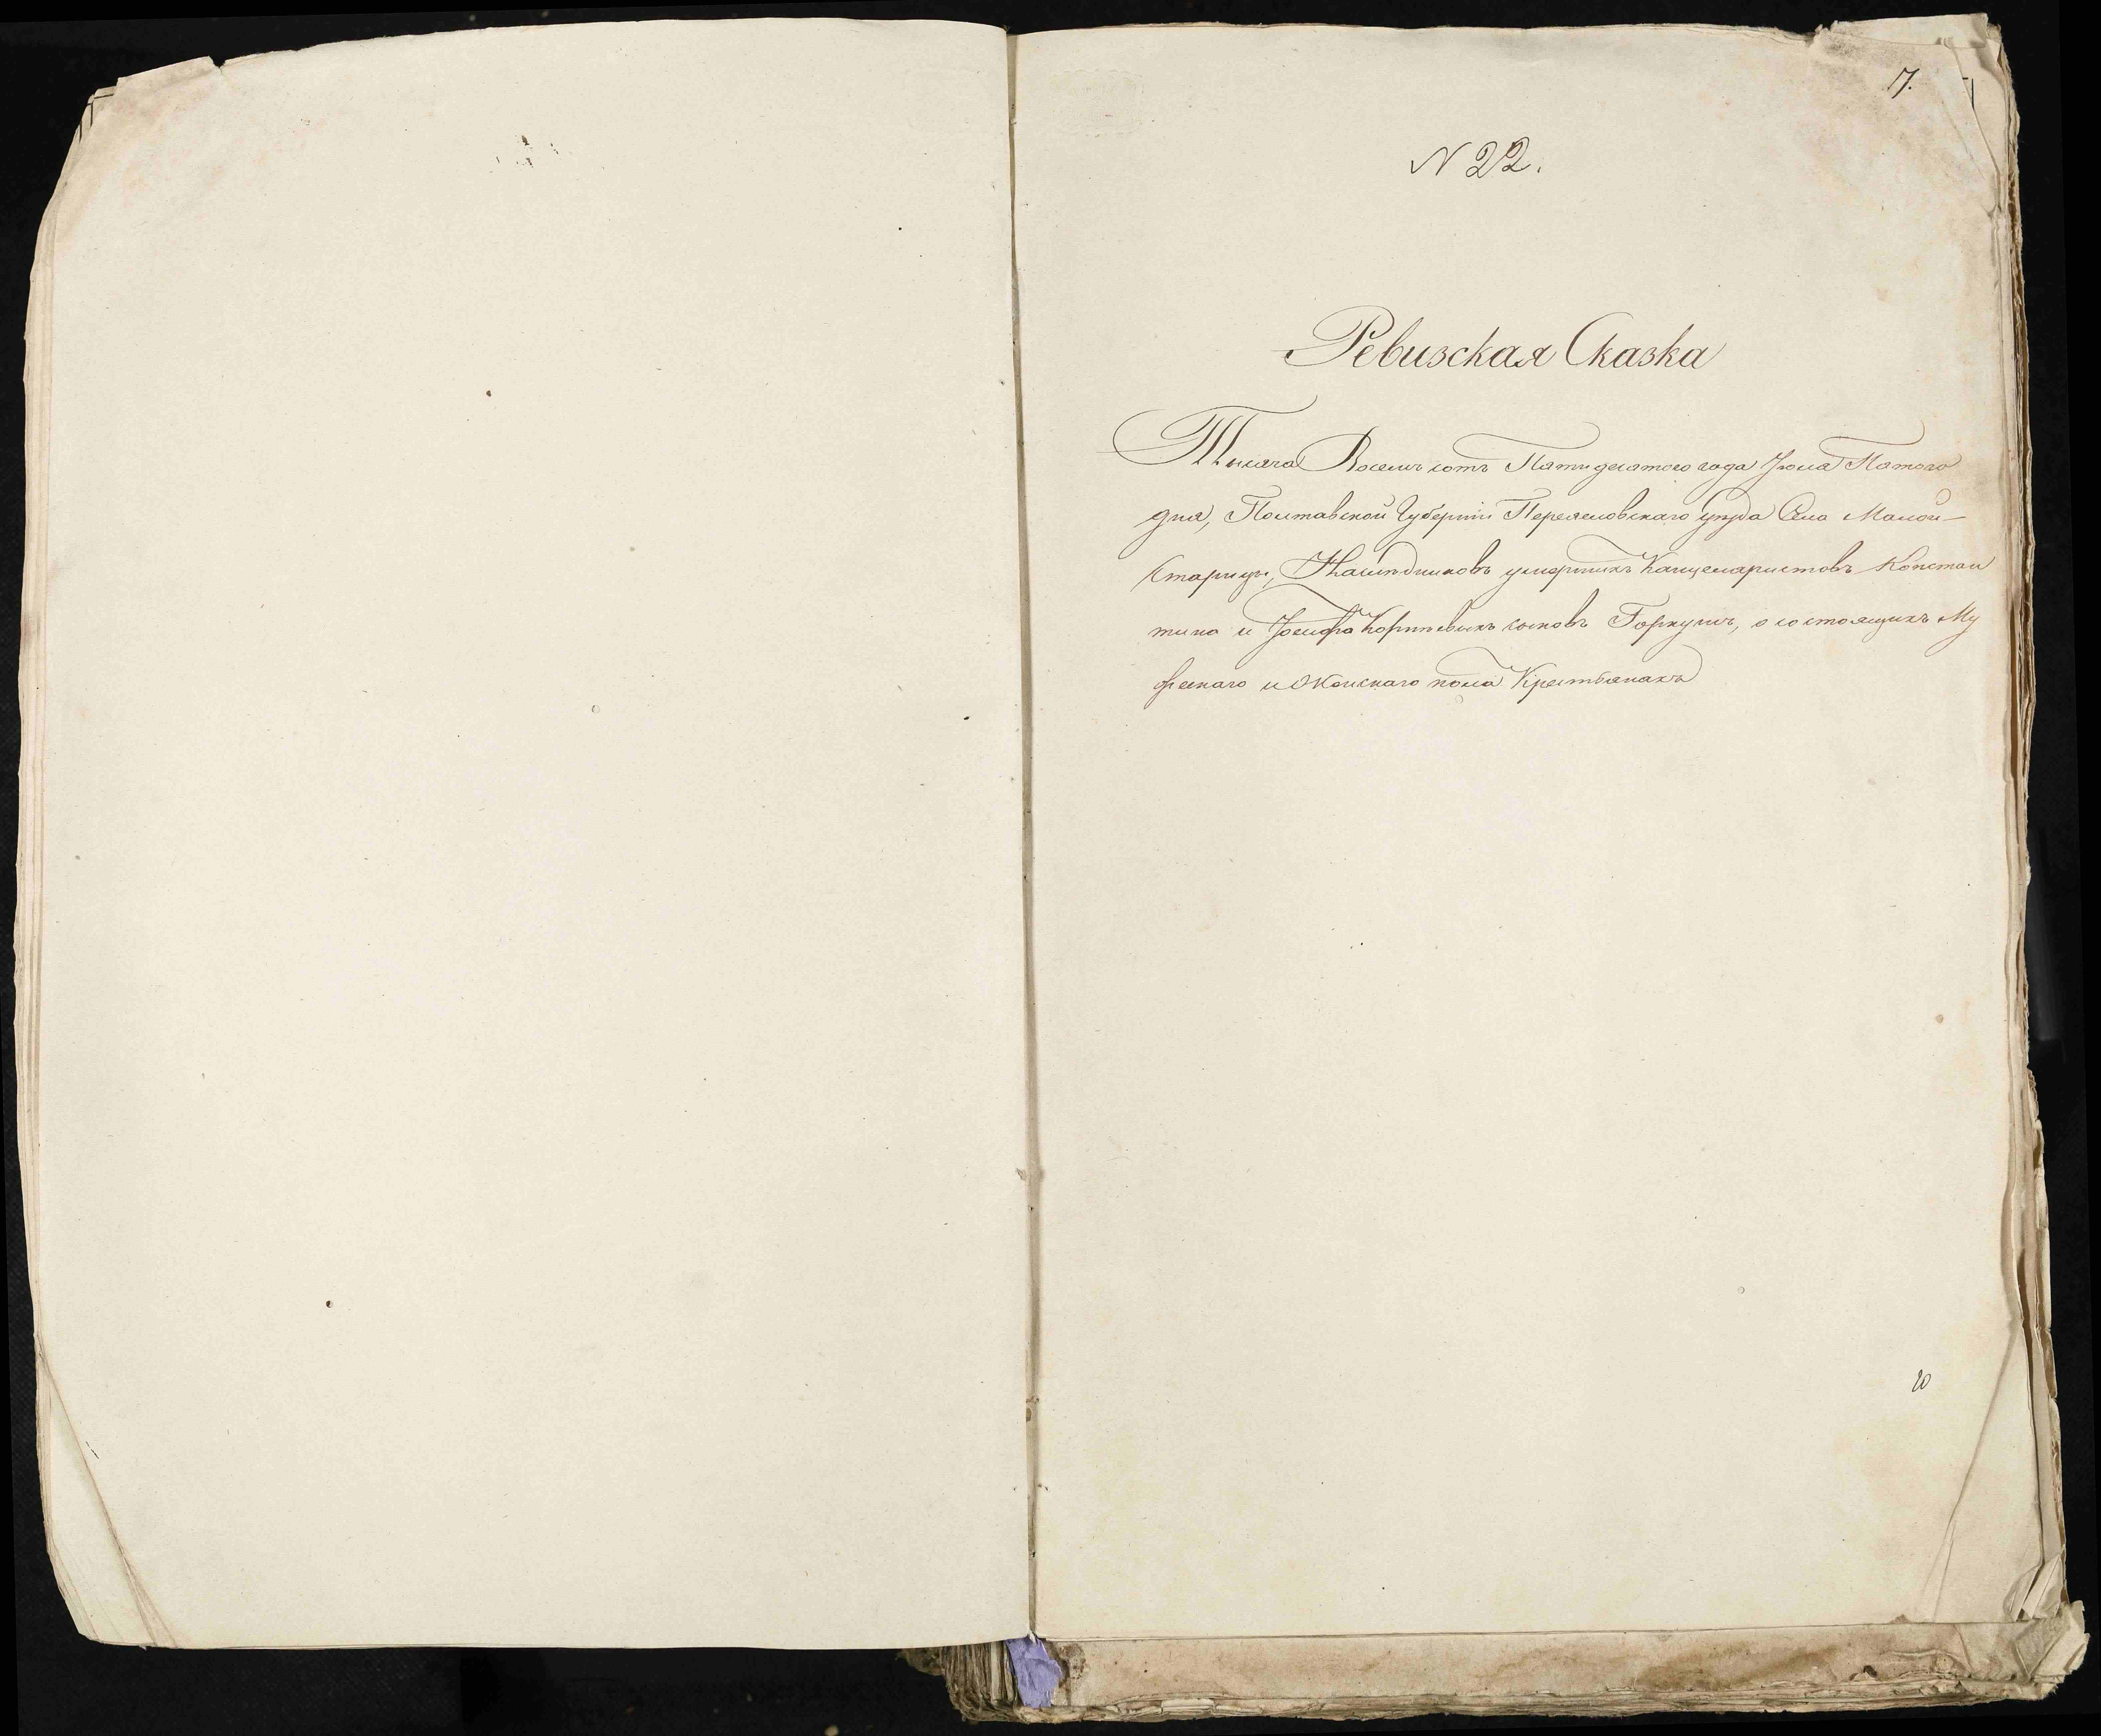 17.
N 22.
Ревизская Сказка
Тысяча Восемь сотъ Пятидесятого года Іюля Пятого
дня, Полтавской Губерніи Переяславскаго уезда Села Малой-
Старицы, Наслѣдниковъ умершихъ Канцеляристовъ Констан
тина и Іосифа сыновъ Горкуши, о состоящихъ Му
жескаго и Женскаго пола Крестьянахъ